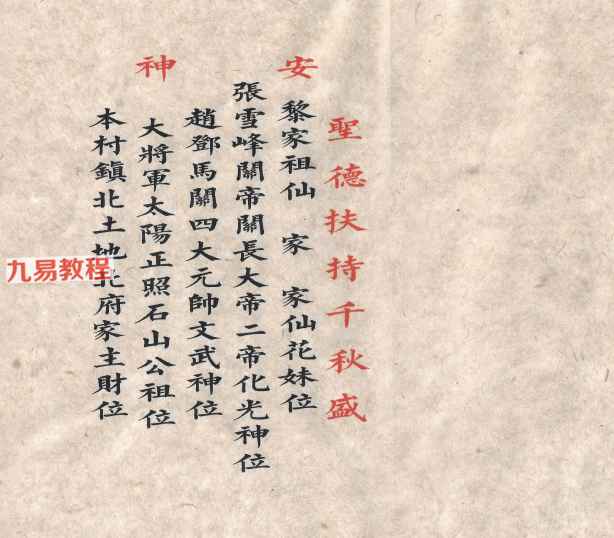 聖德扶持千秋盛
安
黎家祖仙 家 家仙花妹位
張雪峰關帝關長大帝二帝化光神位
趙鄧馬關四大元帥文武神位
神
大將軍太陽正照石山公祖位
本村鎮北土地北府家主財位
九易教程